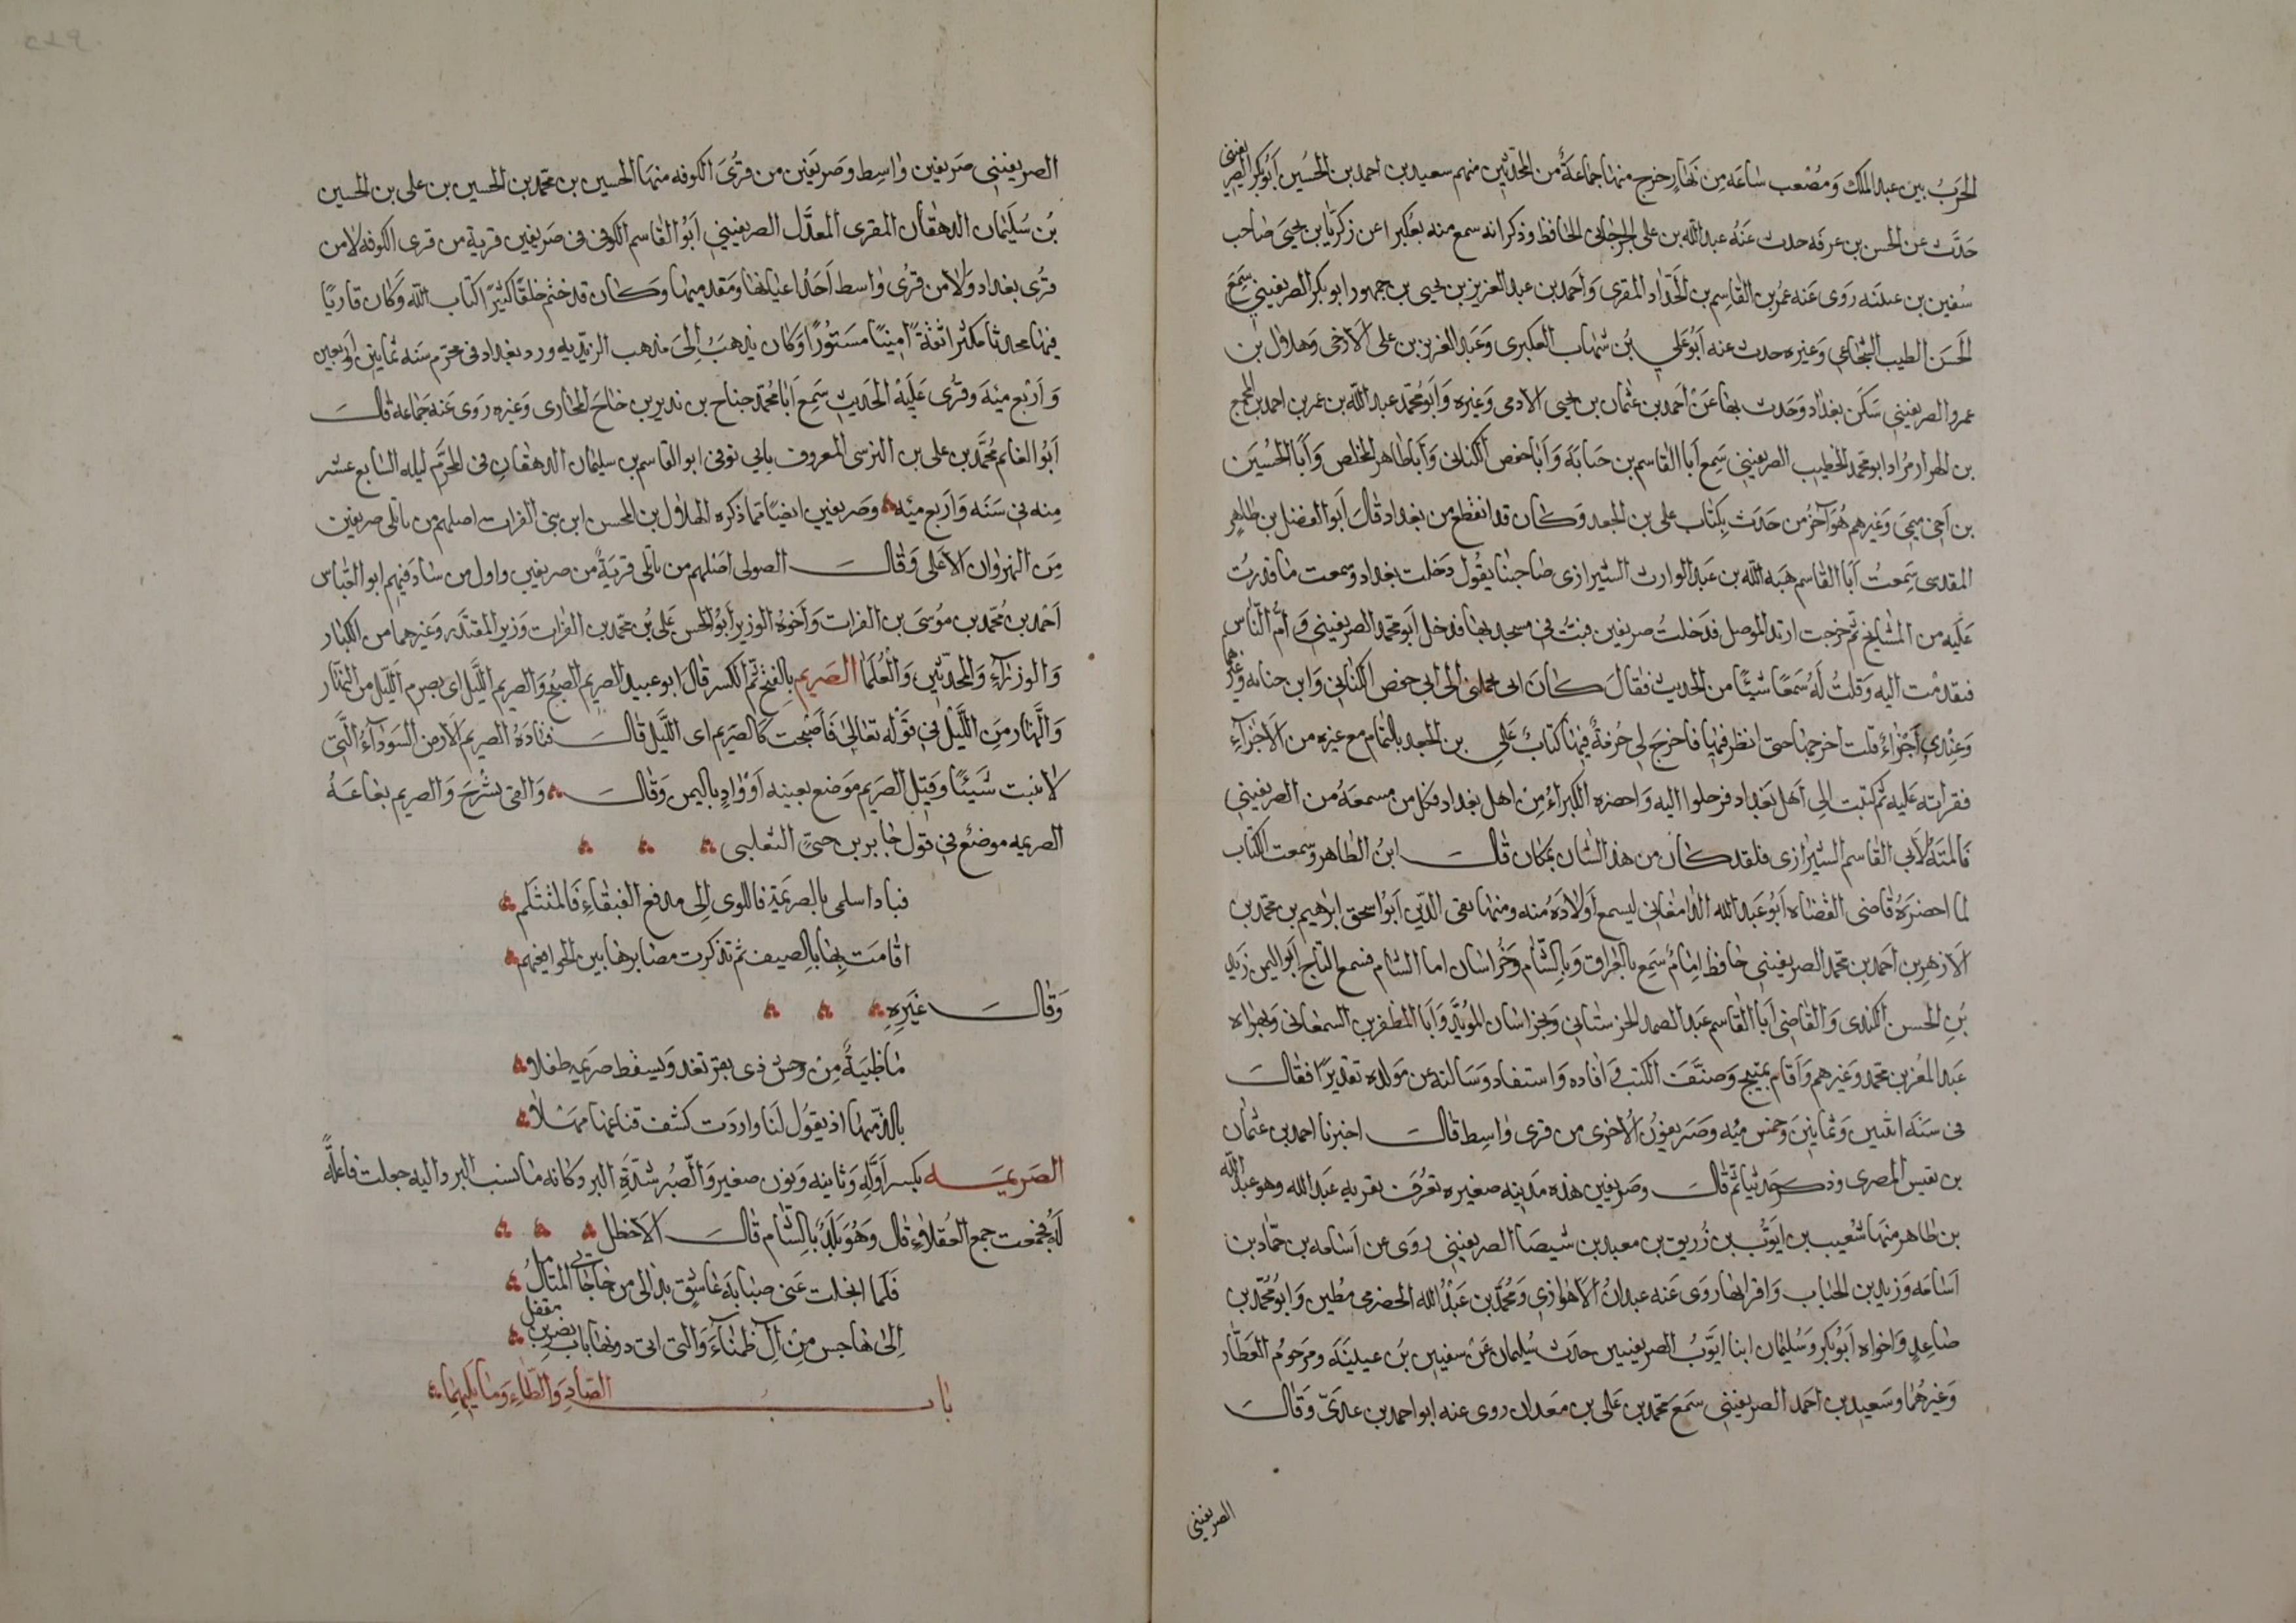 الحَربُ بين عبد الملك وَمُصْعب سَاعَه مِن نَهار خرج منها جماعَةٌ من المحَدثين منهم سعيد بن احمد بن الحُسين اَبُو بكر الصريفينى
حَدَّث عن الحسن بن عرفه حدث عنهُ عبد الله بن على الجرجانى الحافظ وذكر انه سمع منه بعكبرا عن زكريا بن يحيى صَاحب
سُفين بن روَى عَنه عمُر بن القاسِم بن الحَدّاد المقرى وَاَحمد بن عبد العزيز بن يحيى بن جمهور ابو بكر الصريفينى سَمعَ
الحَسَن الطيب الشجاعى وَغيره حدث عنه اَبُو عَلي بنُ شهاب العكبرى وَعَبد العزيز بن على الازجى وَهلال بن
عمرو الصريفينى سَكَن بغداد وَحَدث بها عَنْ اَحمد بن عثمان بن يحيى الادمى وَغيره وَاَبُو محمّد عبد الله بن عمر بن احمد بن
بن مُراد ابو محمد الخطيب الصريفينى سَمع اَبا القاسم بن حَبابَة وَاَبا حفص الكتانى وَاَبا طاهر المخلص وَاَبا الحُسَين
بن اَخى ميمى وَغيرهم هُوَ آخرُ من حَدَث بكتاب على بن الجعد وَكان قد انقطع من بغداد قالَ اَبو الفضل بن طاهر
المقدسى سَمِعتُ اَبَا القاسم هبَه الله بن عَبد الوارث الشيرازى صَاحبنا يقُول دَخلت بغداد وَسمعت مَا قدرتُ
عَليه من المشايخ ثم خرجت اريد الموصل فدَخلتُ صريفين فبتُّ فى مسجد بها فدخل اَبو محمد الصريفينى وَاَمَّ النَّاس
فتقدمْت اليه وَقلتُ لَهُ سَمعتَ شيئًا من الحَديث فقالَ كانَ ابى يحملنى الى ابى حفص الكتانى وَابن حبابه وَغيرهما
وَعِنْدى اَجْزاءٌ قلت اخرجها حتى انظر فيها فاخرجَ لى حُزمةً فيها كتابُ عَلى بن الجعد بالتمام مع غيره من الاَجْزآءِ
فقراته عَليه ثم كتبت الى اَهل بَغداد فرحلوا اليه وَاحضره الكبراءُ مِن اهل بغداد فكل من سمعهُ من الصريفينى
فَالمنَّةُ لاَبى القاسم الشيرازى فلقد كانَ من هذا الشان بمكان قالَ ابنُ الطاهر وَسمعت الكتاب
لما احضرَهُ قاضى القضَاه اَبُو عَبد الله الدامغانى ليسمع اَولادَهُ منه ومنها تقى الدّين اَبُو اسحق ابراهيم بن محمد بن
الاَزهر بن احمد بن محمد الصريفينى حَافظ امَامٌ سَمع بالعراق وَبالشّام وَخُراسَان اما الشام فسمع التاج اَبو اليمن زَيد
بن الحسن الكندى وَالقاضى اَبا القاسم عَبد الصمد وَبخراسَان المؤيَّد وَاَبَا المظفر بن السمعانى وَبهراه
عَبد المُعز بن محمد وَغيرهم وَاَقام بمنبج وَصنَّفَ الكتب وَافاده وَاستفاد وَسَالته عن مَولده تقديرًا فقالَ
فى سنه اثنين وَثمانِيْنَ وَخمس مئه وصَريفونُ الاُخرى من قرى وَاسط قالَ اخبرنا احمد بن عثمان
بن نفيس المصرى وَذكر حَديثًا ثم قالَ وصَريفين هذه مَدينه صغيره تعرُف بقريه عَبد الله وَهو عبد الله
بن طَاهر منها شعَيب بن ايّوُب بن زُريق بن معبد بن شيصَا الصريفينى روَى عن اسَامه بن حمّاد بن
اسَامَه وَزيد بن الحباب وَاقرانها روَى عَنه عبدانُ الاَهوازى وَمُحَمَّد بن عَبْد الله الحضرمى مُطين وَابو مُحَمَّد بن
صَاعِد وَاخواه اَبُو بكر وَسُليمان ابنا ايَوّب الصريفينيين حدث سُليمان عَنْ سفيين بن عيينَة ومَرحوم العَطّار
وَغيرهُما وسَعيد بن احَمد الصريفينى سَمعَ محمّد بن عَلى بن مَعدان روى عنه ابو احمد بن عَدىّ وَقالَ
الصريفينى
الصريفينى صَريفين وَاسِط وَصَريفين من قرُى الكوفه منها الحسين بن محمّد بن الحسين بن على بن الحسين
بن سُلَيْمَان الدهقان المقرى المعدَّل الصريفينى اَبُو القاسم الكوفى فى صَريفين قرية من قرى الكوفه لا من
قرُى بغداد وَلا من قرُى وَاسط اَحَدُ اعيانها وَمقدميها وَكان قد ختم خلقًا كثيرًا كتاب الله وَكان قاريًا
فيها محدثا مكثرًا ثقةً امينًا مَستُورًا وَكان يذهَبُ إلى مذهب الزيديه ورد بغداد فى محرم سَنه ثمانين
وَاَربْع مئة وَقُرى عَلَيْه الحَديث سَمِع اَبَا مُحَمّد جنَاح بن نذير بن جناح المحَاربى وَغيره روَى عَنه جَماعه قالَ
اَبُو الغنائم مُحَمَّد بن على بن النرسى المعروف بابى توفى ابو القاسم بن سليمان الدهقان فى المحرَّم ليله السَابع عشر
مِنه فى سَنه وَاَربع مئه وَصَريفين ايضًا مما ذكره الهلال بن المحسن ابن بنى الفرات اصلهم من بابلى صريفين
مِن النهروان الاَعلى وَقالَ الصولى اصلهم من بابلى قريةٌ من صريفين وَاول من سَادَ فيهم ابو العَبّاس
اَحمد بن مُحَمّد بن مُوسَى بن الفرات وَاَخوهُ الوزير اَبُو الحسن عَلى بن محمّد بن الفرات وَزير المقتدر وَغيرهما من الكبار
وَالوزرَآءِ وَالمحدّثين وَالعُلمَا الصَريم بالفتح ثم الكسر قال ابو عبيد الصريم الصبح وَالصريم اللّيل اى يصرم اللّيل من النهار
وَالنهار مِن اللّيل فى قوْله تعالى فَاَصْبحت كَالصريم اى اللّيل قالَ قتادَهُ الصريم الاَرض السَوْدَآءُ الّتى
لا تنبت شَيئًا وَقيل الصَريم مَوضع بعينه اَوْ وَادٍ باليمن وَقالَ وَالقى بشَرْجَ وَالصريم بعَاعَهُ
الصريمه موضعٌ فى قول جابر بن حنىّ التغلبى
فيا دار سلمى بالصريمَةِ فاللوى إلى مدفع القيقاءِ فالمتثلم
اقامت بها بالصيف ثم تذكرت مصَايرها بين الجواء فعيهم
وَقالَ غَيره
مَا ظَبيَةٌ مِن وَحش ذى بقر تغدو بسقط صَريمه طفلا
بالذّ منها اذ تقوُل لنَا وَاردَت كشف قناعها مَهْلا
الصَريمَه بكسر اَوّله وَثانيه وَنون صغير وَالصّبُر شدّةِ البرد وَكانه مَا نسب البرد اليه جعلت فاعلةً
لَهُ فجمعت جمع العُقلاءِ قال وَهُوَ بَلَدٌ بالشَّام قالَ الاَخطل
فَلَمّا انجَلت عَنى صبَابَةُ عَاشِق بدا لى من حَاجَاتى المتاَملُ
إلى هَاجس مِنْ آلِ ظَميَاءَ وَالتى اتى دونها باب بصرين مقفل
بَابُ الصَادِ وَالطّاءِ وَمَا يَليهِمَا